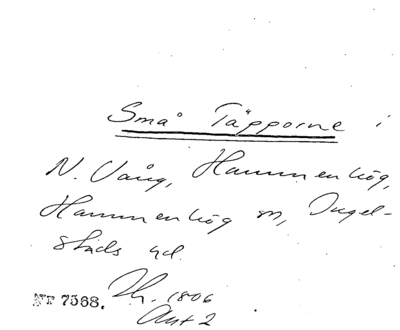 Små Täpporne i
N. Vång, Hammenhög,
Hammenhög sn, Ingel-
stads hd.
NT 7568. Lh. 1806
Akt 2